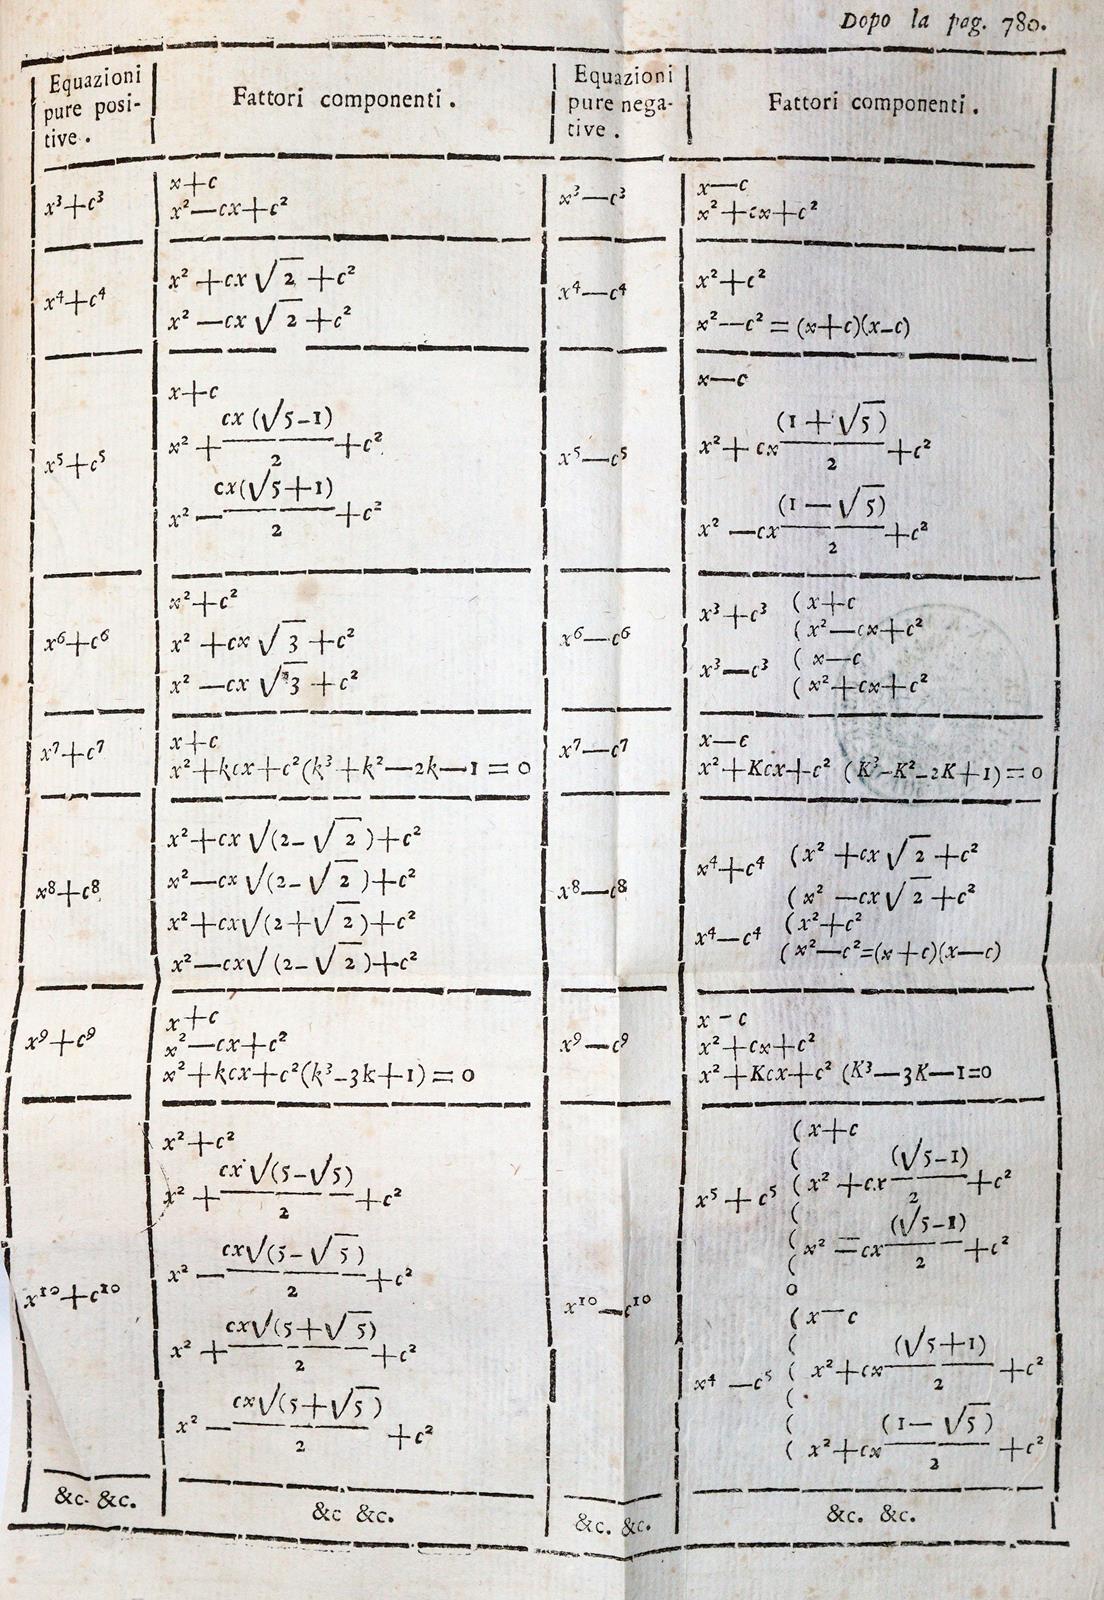 Dopo la pag. 780.
Equazioni pure posi-tive.
Fattori componenti.
Equazioni pure nega-tive.
Fattori componenti.
x³+c³
x+c
x²—cx+c²
x³—c³
x—c
x²+cx+c²
x⁴+c⁴
x²+cx√2+c²
x²—cx√2+c²
x⁴—c⁴
x²+c²
x²—c²=(x+c)(x-c)
x⁵+c⁵
x+c
x²+cx(√5-1)/2+c²
x²—cx(√5+1)/2+c²
x⁵—c⁵
x—c
x²+cx(1+√5)/2+c²
x²—cx(1—√5)/2+c²
x⁶+c⁶
x²+c²
x²+cx√3+c²
x²—cx√3+c²
x⁶—c⁶
x³+c³ (x+c
(x²—cx+c²
x³—c³ (x—c
(x²+cx+c²
x⁷+c⁷
x+c
x²+kcx+c²(k³+k²—2k—1=0
x⁷—c⁷
x—c
x²+Kcx+c² (K³-K²-2K+1)=0
x⁸+c⁸
x²+cx√(2-√2)+c²
x²—cx√(2-√2)+c²
x²+cx√(2+√2)+c²
x²—cx√(2-√2)+c²
x⁸—c⁸
x⁴+c⁴ (x²+cx√2+c²
(x²—cx√2+c²
x⁴—c⁴ (x²+c²
(x²—c²=(x+c)(x—c)
x⁹+c⁹
x+c
x²—cx+c²
x²+kcx+c²(k³-3k+1)=0
x⁹—c⁹
x-c
x²+cx+c²
x²+Kcx+c² (K³—3K—1=0
x¹⁰+c¹⁰
x²+c²
x²+cx√(5-√5)/2+c²
x²—cx√(5-√5)/2+c²
x²+cx√(5+√5)/2+c²
x²—cx√(5+√5)/2+c²
x¹⁰—c¹⁰
x⁵+c⁵ (x+c
(x²+cx(√5-1)/2+c²
(x²=cx(√5-1)/2+c²
x⁴—c⁵ (x—c
(x²+cx(√5+1)/2+c²
(x²+cx(1—√5)/2+c²
&c. &c.
&c &c.
&c. &c.
&c. &c.